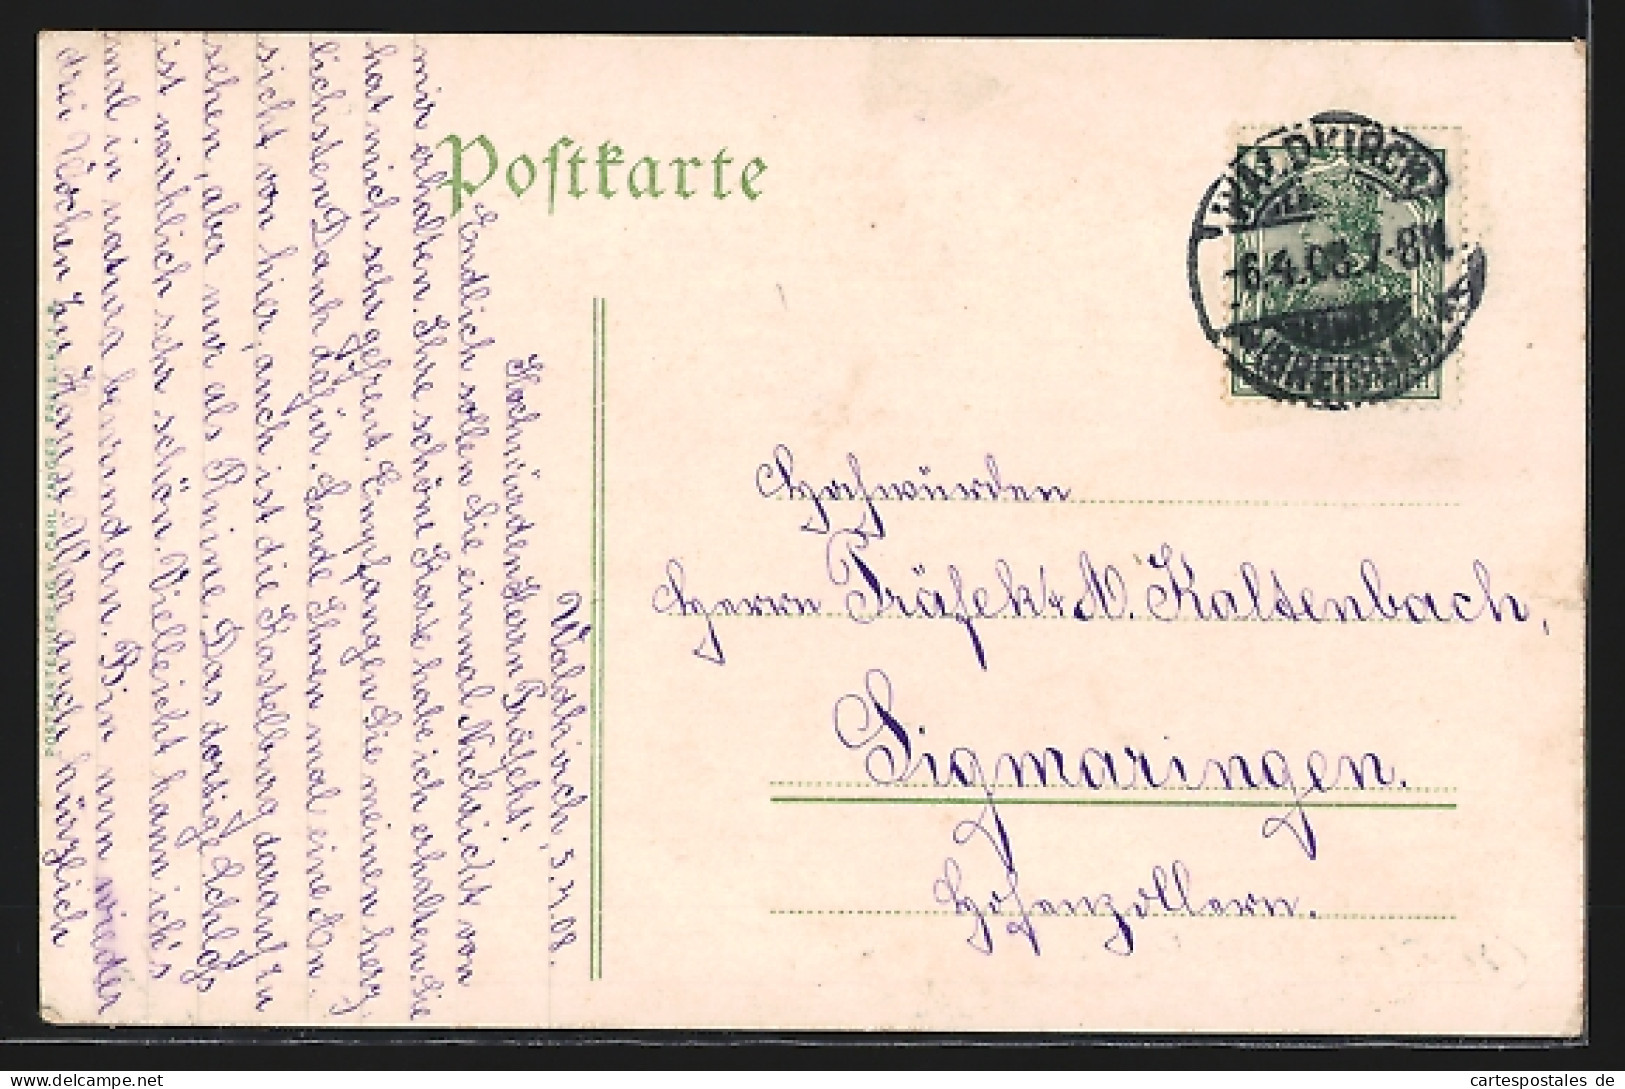 Postkarte
WALDKIRCH
-6.4.08.7-8N.
(BREISGAU)
Hochwürden
Herrn Präfekt A. Kaltenbach,
Sigmaringen.
Hohenzollern.
Waldkirch, 5.4.08.
Hochwürden Herrn Präfekt!
Endlich sollen Sie einmal Nachricht von
mir erhalten. Ihre schöne Karte habe ich erhalten. Sie
hat mich sehr gefreut. Empfangen Sie meinen herz
lichsten Dank dafür. Sende Ihnen mal eine An-
sicht von hier, auch ist die Kastelburg darauf zu
sehen, aber nur als Ruine. Das dortige Schloß
ist wirklich sehr schön. Vielleicht kann ich's
mal in natura bewundern. Bin nun wieder
drei Wochen zu Hause. War auch kürzlich
POSTKARTENVERLAG CARL